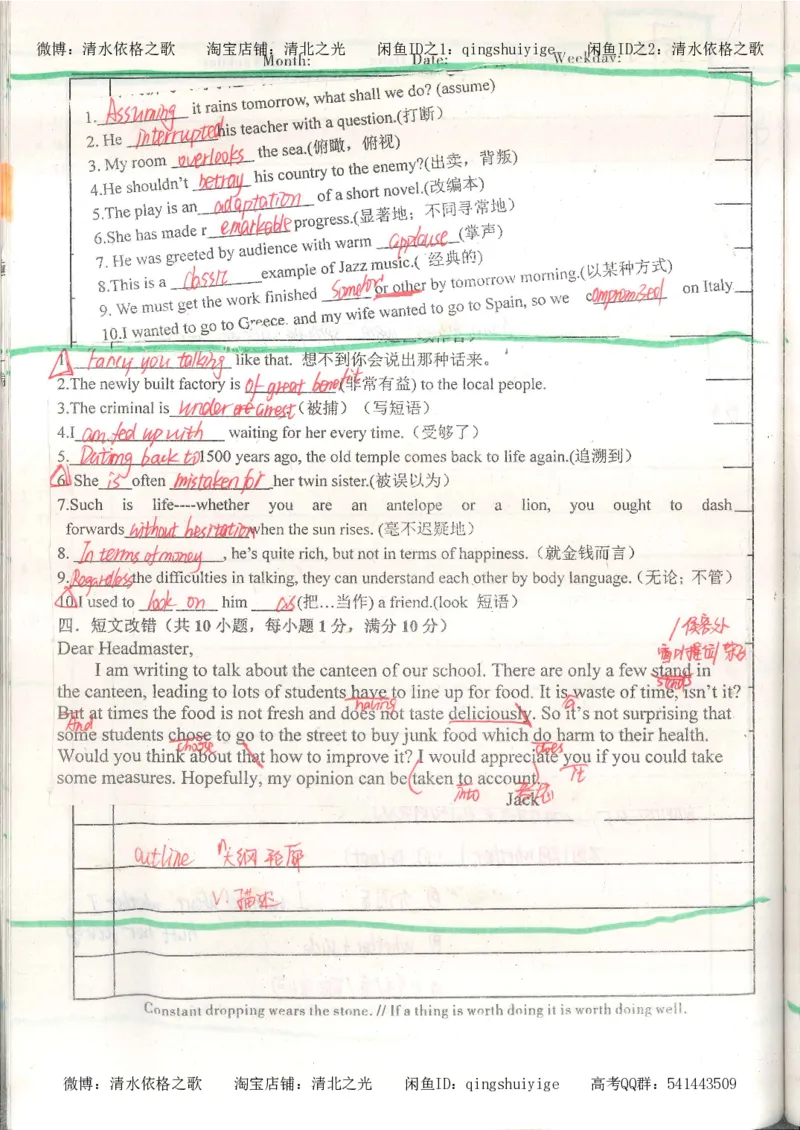 微博：清水依格之歌 淘宝店铺：清北之光 闲鱼ID之1：qingshuiyige 闲鱼ID之2：清水依格之歌
Month: Date: Weekday:
1. Assuming it rains tomorrow, what shall we do? (assume)
2. He interrupted his teacher with a question.(打断)
3. My room overlooks the sea.(俯瞰，俯视)
4.He shouldn't betray his country to the enemy?(出卖，背叛)
5.The play is an adaptation of a short novel.(改编本)
6.She has made r emarkable progress.(显著地；不同寻常地)
7. He was greeted by audience with warm applause (掌声)
8.This is a classic example of Jazz music.( 经典的)
9. We must get the work finished somehow or other by tomorrow morning.(以某种方式)
10.I wanted to go to Greece. and my wife wanted to go to Spain, so we compromised on Italy
1. Fancy you talking like that. 想不到你会说出那种话来。
2.The newly built factory is of great benefit (非常有益) to the local people.
3.The criminal is under arrest (被捕) (写短语)
4.I am fed up with waiting for her every time.（受够了）
5. Dating back to 1500 years ago, the old temple comes back to life again.(追溯到)
6. She is often mistaken for her twin sister.(被误以为)
7.Such is life----whether you are an antelope or a lion, you ought to dash
forwards without hesitation when the sun rises. (毫不迟疑地)
8. In terms of money, he's quite rich, but not in terms of happiness.（就金钱而言）
9. Regardless the difficulties in talking, they can understand each other by body language.(无论；不管)
10.I used to look on him as (把…当作) a friend.(look 短语)
四．短文改错（共 10 小题，每小题 1 分，满分 10 分）
Dear Headmaster,
I am writing to talk about the canteen of our school. There are only a few stand in
stands
the canteen, leading to lots of students have to line up for food. It is waste of time, isn't it?
having a
But at times the food is not fresh and does not taste deliciously. So it's not surprising that
And
some students chose to go to the street to buy junk food which do harm to their health.
choose does
Would you think about that how to improve it? I would appreciate you if you could take
it
some measures. Hopefully, my opinion can be taken to account.
into
Jack
outline n 大纲 轮廓
v. 描述
Constant dropping wears the stone. // If a thing is worth doing it is worth doing well.
微博：清水依格之歌 淘宝店铺：清北之光 闲鱼ID：qingshuiyige 高考QQ群：541443509